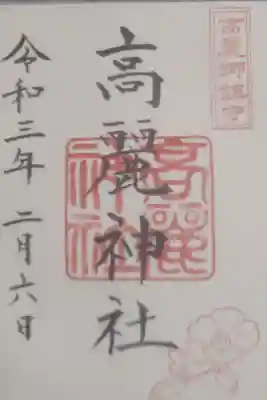 高麗神社
高麗神社
令和三年 二月六日